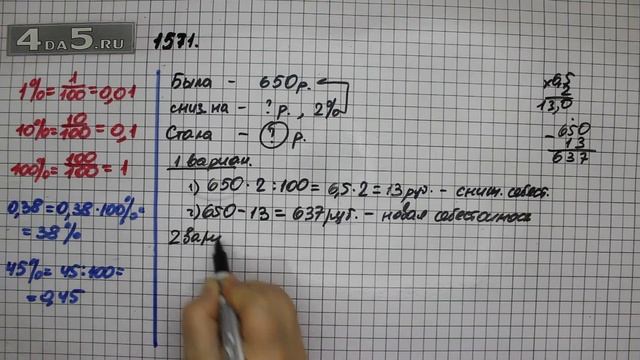 4DA5.RU
1571.
1% = 1/100 = 0,01
10% = 10/100 = 0,1
100% = 100/100 = 1
0,38 = 0,38·100% =
= 38%
45% = 45:100 =
= 0,45
Была - 650 р.
сниз. на - ? р., 2%
Стала - ? р.
1 вариан.
1) 650·2:100 = 6,5·2 = 13 руб. - сниж. себест.
2) 650-13 = 637 руб. - новая себестоимость
2 вари
× 6,5
2
13,0
- 650
13
637